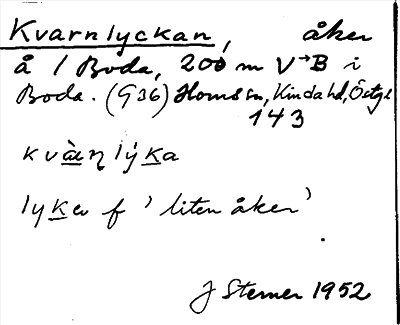 Kvarnlyckan, åker
å 1 Boda, 200 m V→B i
Boda. (G36) Horns sn, Kinda hd, Östgl
143
kvàɳlýka
lyka f 'liten åker'
J Sterner 1952